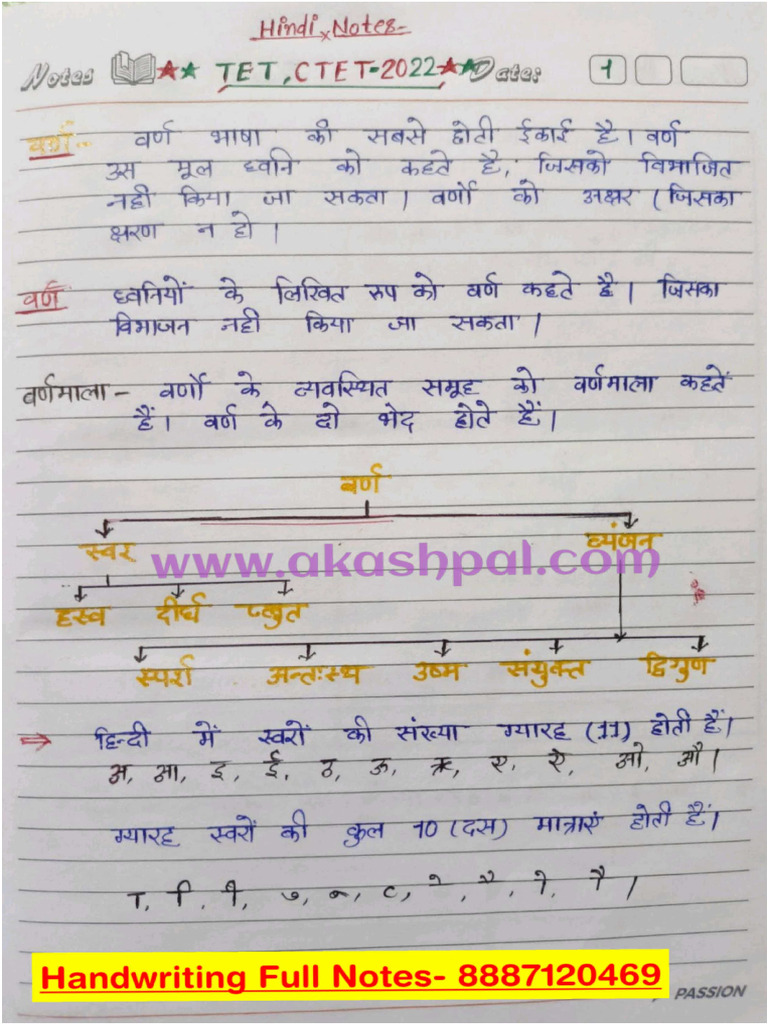 Hindi Notes-
Notes TET, CTET-2022 Date: 1
वर्ण - वर्ण भाषा की सबसे छोटी ईकाई है। वर्ण
उस मूल ध्वनि को कहते है, जिसको विभाजित
नही किया जा सकता। वर्णो को अक्षर (जिसका
क्षरण न हो।
वर्ण ध्वनियों के लिखित रूप को वर्ण कहते है। जिसका
विभाजन नही किया जा सकता।
वर्णमाला - वर्णो के व्यवस्थित समूह को वर्णमाला कहतें
हैं। वर्ण के दो भेद होते हैं।
वर्ण
स्वर व्यंजन
www.akashpal.com
ह्रस्व दीर्घ प्लुत
स्पर्श अन्तःस्थ उष्म संयुक्त द्विगुण
⇒ हिन्दी में स्वरों की संख्या ग्यारह (11) होती हैं।
अ, आ, इ, ई, उ, ऊ, ऋ, ए, ऐ, ओ, औ।
ग्यारह स्वरों की कुल 10 (दस) मात्राएं होती हैं।
ा, ि, ी, ु, ू, ृ, े, ै, ो, ौ।
Handwriting Full Notes- 8887120469
PASSION